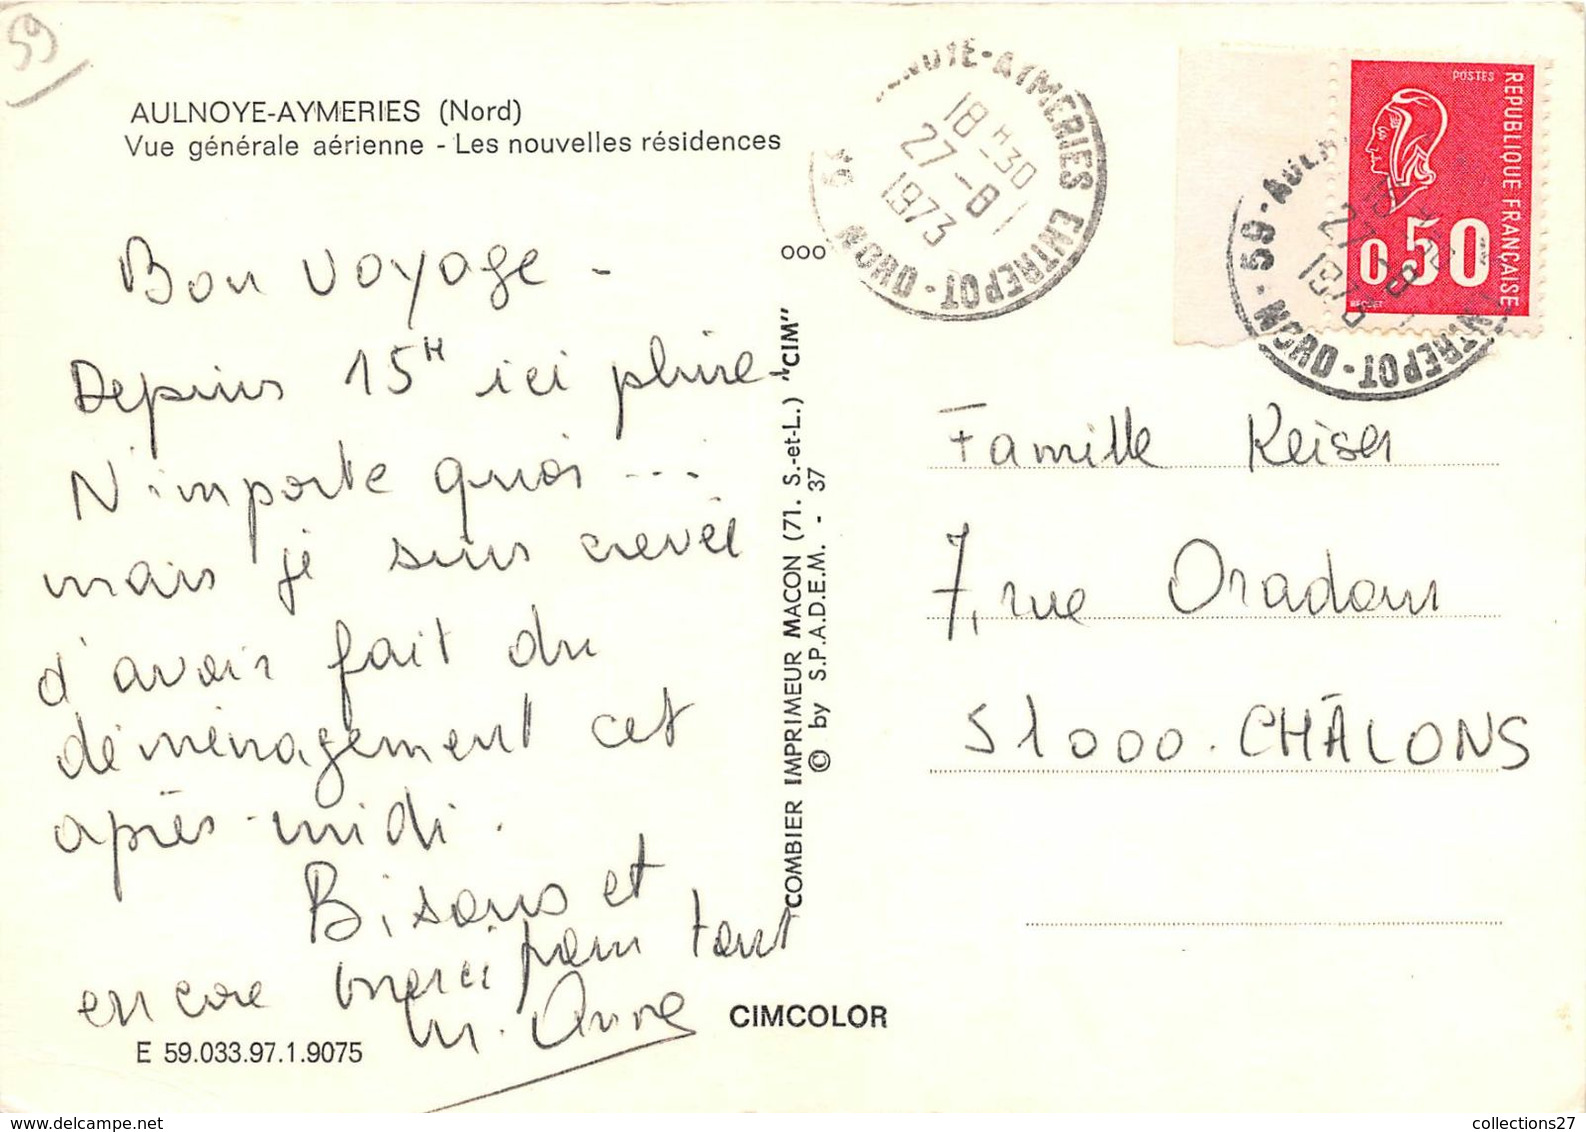 59
AULNOYE-AYMERIES (Nord)
Vue générale aérienne - Les nouvelles résidences
Bon voyage -
Depuis 15H ici pluie
N'importe quoi ...
mais je suis crevée
d'avoir fait du
déménagement cet
après-midi.
Bisous et
encore merci pour tout
M. Anne
E 59.033.97.1.9075
CIMCOLOR
ooo
COMBIER IMPRIMEUR MACON (71. S.-et-L.) "CIM"
© by S.P.A.D.E.M. - 37
NOYE-AYMERIES ENTREPOT - NORD 59
18 H 30
27 - 8
1973
POSTES
REPUBLIQUE FRANÇAISE
0,50
BEQUET
59 - AUL
ENTREPOT - NORD
27 - 8
1973
Famille Keiser
7, rue Oradour
51000. CHÂLONS
collections27